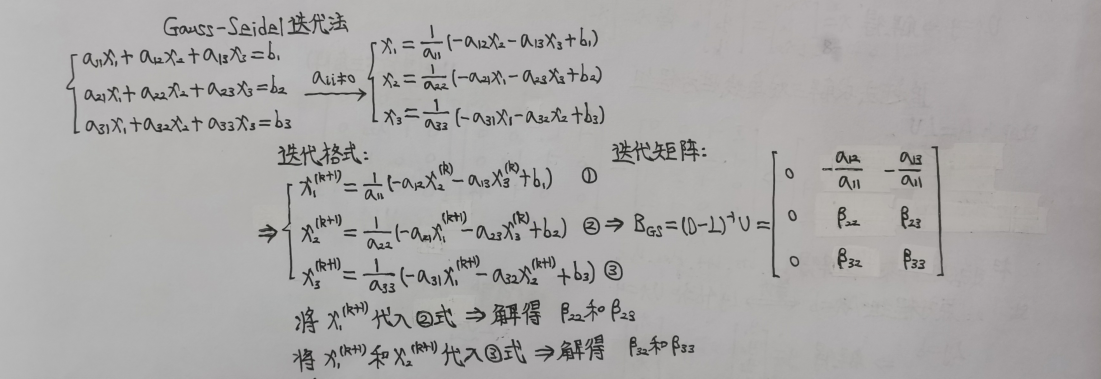 Gauss-Seidel 迭代法
a₁₁x₁+a₁₂x₂+a₁₃x₃=b₁
a₂₁x₁+a₂₂x₂+a₂₃x₃=b₂
a₃₁x₁+a₃₂x₂+a₃₃x₃=b₃
aᵢᵢ≠0
x₁=1/a₁₁(-a₁₂x₂-a₁₃x₃+b₁)
x₂=1/a₂₂(-a₂₁x₁-a₂₃x₃+b₂)
x₃=1/a₃₃(-a₃₁x₁-a₃₂x₂+b₃)
迭代格式:
⇒ x₁^(k+1)=1/a₁₁(-a₁₂x₂^(k)-a₁₃x₃^(k)+b₁) ①
x₂^(k+1)=1/a₂₂(-a₂₁x₁^(k+1)-a₂₃x₃^(k)+b₂) ②
x₃^(k+1)=1/a₃₃(-a₃₁x₁^(k+1)-a₃₂x₂^(k+1)+b₃) ③
迭代矩阵:
⇒ B_GS=(D-L)⁻¹U=
0 -a₁₂/a₁₁ -a₁₃/a₁₁
0 β₂₂ β₂₃
0 β₃₂ β₃₃
将 x₁^(k+1) 代入②式 ⇒ 解得 β₂₂和β₂₃
将 x₁^(k+1) 和 x₂^(k+1) 代入③式 ⇒ 解得 β₃₂和β₃₃